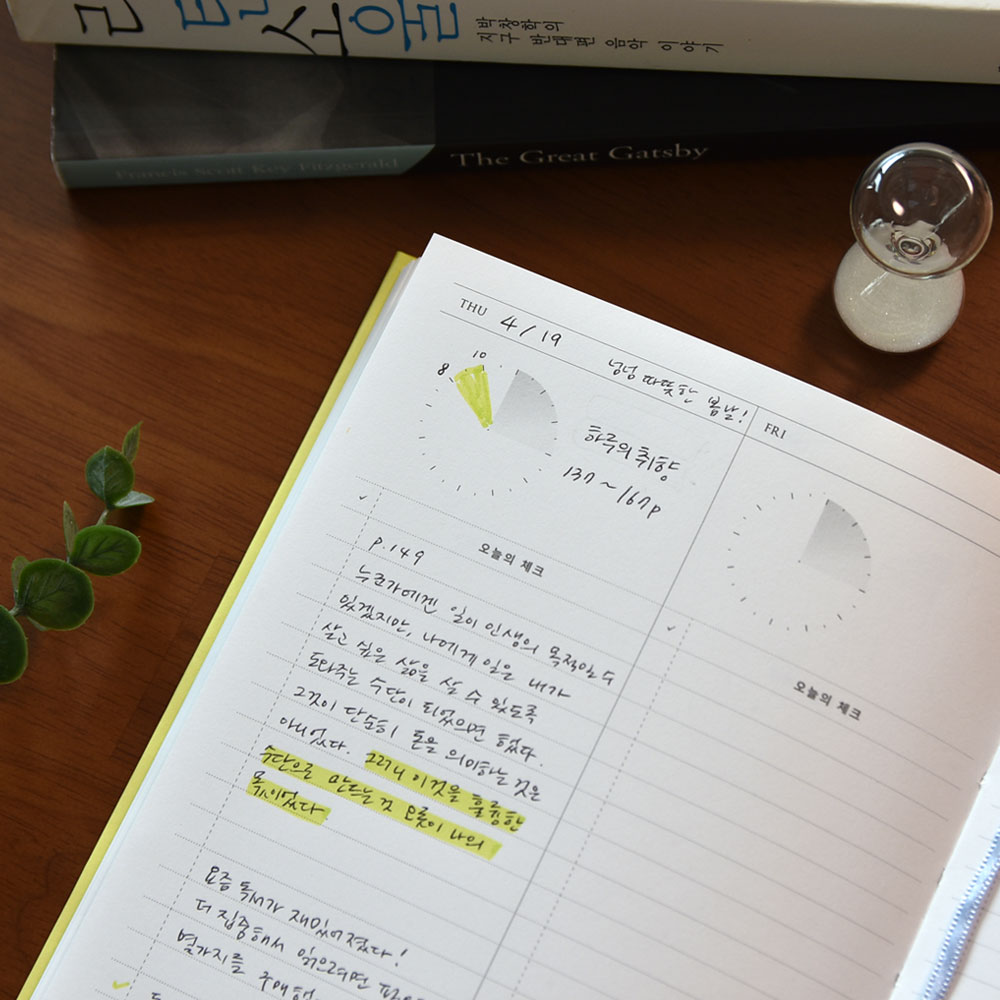 라틴소울
박창학의
지구 반대편 음악 이야기
Francis Scott Key Fitzgerald The Great Gatsby
THU 4/19 넘넘 따뜻한 봄날!
10
8
하루의 취향
137~167p
오늘의 체크
p.149
누군가에겐 일이 인생의 목적일 수
있겠지만, 나에게 일은 내가
살고 싶은 삶을 살 수 있도록
도와주는 수단이 되었으면 했다.
그것이 단순히 돈을 의미하는 것은
아니었다. 그러니 이것을 훌륭한
수단으로 만드는 것 오롯이 나의
몫이었다
요즘 독서가 재밌어졌다!
더 집중해서 읽으려면
몇가지를
FRI
오늘의 체크